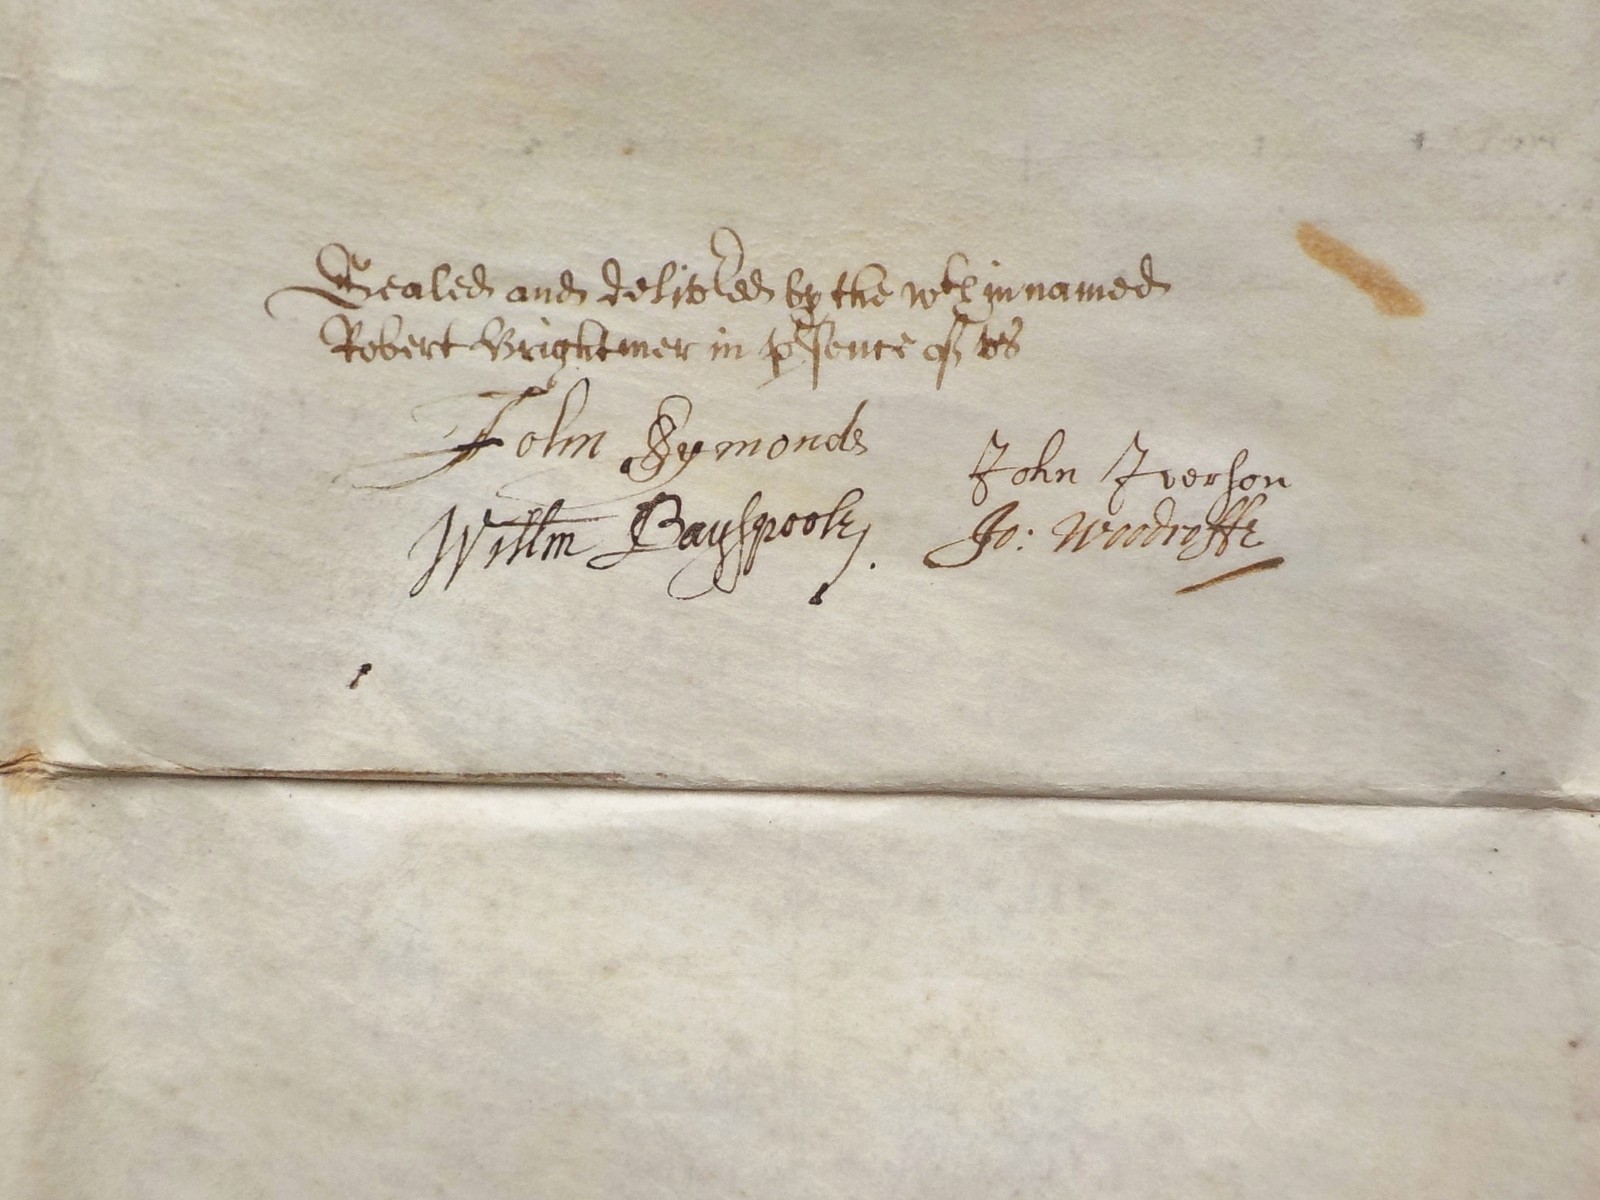 Sealed and delivred by the wthin named
Robert Brightmer in psence of vs
John Symonds
John Iverson
Willm Bayspoole
Jo: Woodroffe